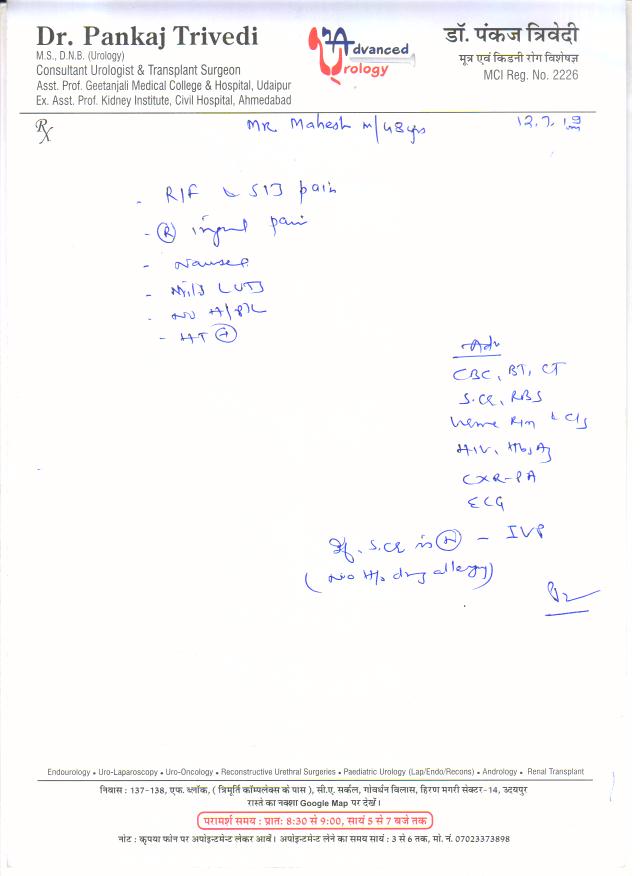 Dr. Pankaj Trivedi
M.S., D.N.B. (Urology)
Consultant Urologist & Transplant Surgeon
Asst. Prof. Geetanjali Medical College & Hospital, Udaipur
Ex. Asst. Prof. Kidney Institute, Civil Hospital, Ahmedabad
Advanced
Urology
डॉ. पंकज त्रिवेदी
मूत्र एवं किडनी रोग विशेषज्ञ
MCI Reg. No. 2226
Rx
Mr. Mahesh m/48yrs
12.7.19
- RIF pain
- (R) pain
- Nausea
- Mild LUTS
- No
- HT (+)
Adv
CBC, BT, CT
S.CR, RBS
Urine C/S
HIV, HbsAg
CXR-PA
ECG
If S.CR is (N) - IVP
(No H/o drug allergy)
Endourology • Uro-Laparoscopy • Uro-Oncology • Reconstructive Urethral Surgeries • Paediatric Urology (Lap/Endo/Recons) • Andrology • Renal Transplant
निवास : 137-138, एफ. ब्लॉक, ( त्रिमूर्ति कॉम्पलेक्स के पास ), सी.ए. सर्कल, गोवर्धन विलास, हिरण मगरी सेक्टर-14, उदयपुर
रास्ते का नक्शा Google Map पर देखें।
परामर्श समय : प्रातः 8:30 से 9:00, सायं 5 से 7 बजे तक
नोट : कृपया फोन पर अपॉइन्टमेन्ट लेकर आवें। अपॉइन्टमेन्ट लेने का समय सायं : 3 से 6 तक, मो. नं. 07023373898